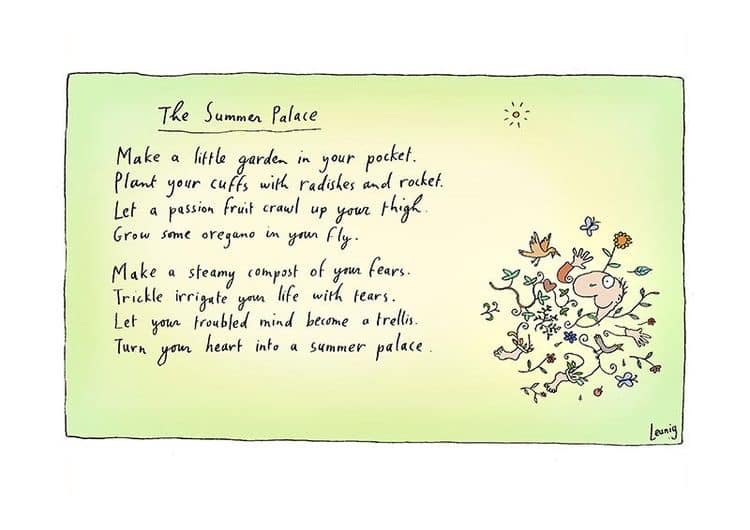 The Summer Palace
Make a little garden in your pocket.
Plant your cuffs with radishes and rocket.
Let a passion fruit crawl up your thigh.
Grow some oregano in your fly.
Make a steamy compost of your fears.
Trickle irrigate your life with tears.
Let your troubled mind become a trellis.
Turn your heart into a summer palace.
Leunig